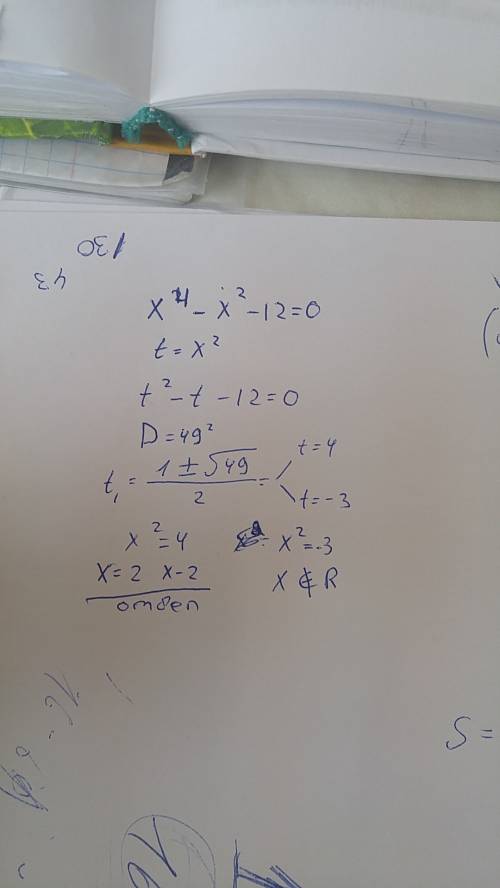 130
43
x⁴ - x² - 12 = 0
t = x²
t² - t - 12 = 0
D = 49²
t₁ = (1 ± √49) / 2 = t = 4 t = -3
x² = 4 x² = -3
x = 2 x - 2 x ∉ R
ответ
S =
16